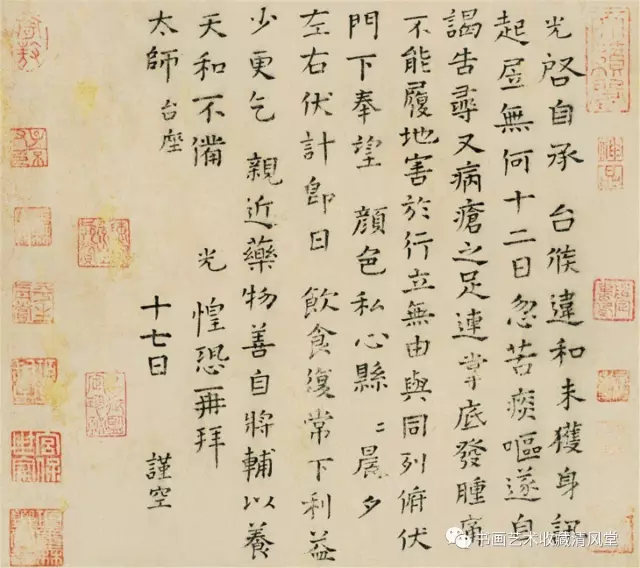 光啓自承 台候違和未獲身訊
起居無何十二日忽苦痰嘔遂自
謁告尋又病瘡之足連掌底發腫痛
不能履地害於行立無由與同列俯伏
門下奉望 顏色私心縣〻晨夕
左右伏計即日 飲食復常下利益
少更乞 親近藥物善自將輔以養
天和不備 光 惶恐再拜
太師 台座
十七日 謹空
宮保世家
书画艺术收藏清风堂